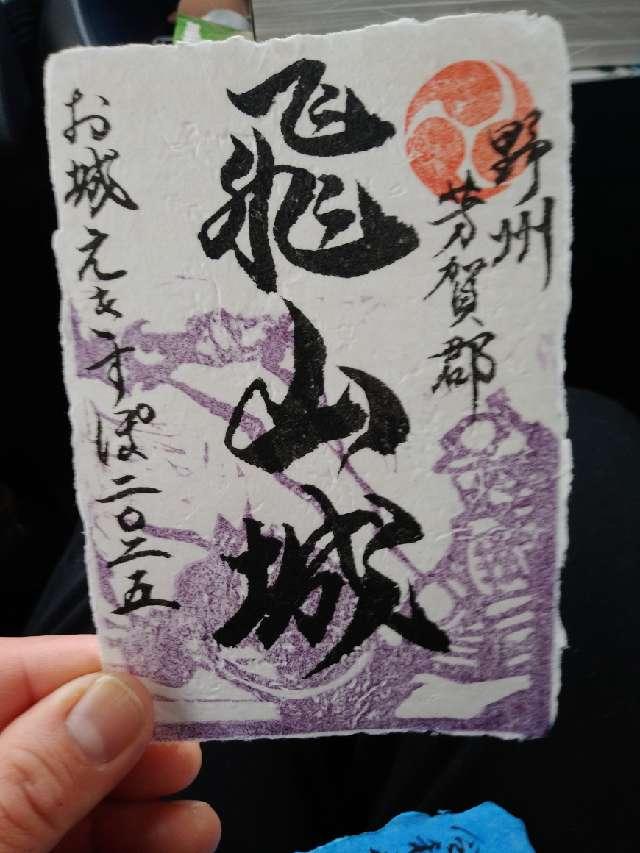 野州
芳賀郡
飛山城
お城えきすぽ二〇二五